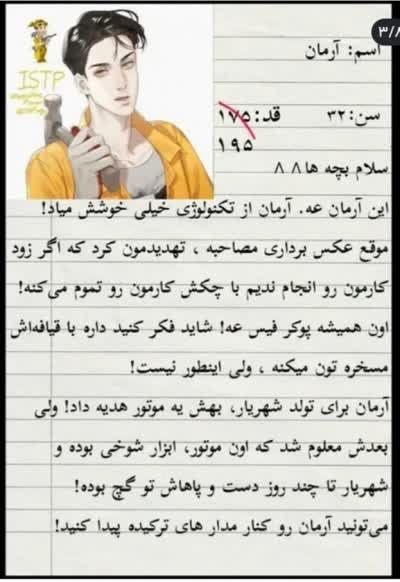 ۳/۸
ISTP
اسم: آرمان
سن: ۳۲ قد: ۱۷۵
۱۹۵
سلام بچه ها ۸ ۸
این آرمان عه. آرمان از تکنولوژی خیلی خوشش میاد!
موقع عکس برداری مصاحبه ، تهدیدمون کرد که اگر زود
کارمون رو انجام ندیم با چکش کارمون رو تموم می‌کنه!
اون همیشه پوکر فیس عه! شاید فکر کنید داره با قیافه‌اش
مسخره تون میکنه ، ولی اینطور نیست!
آرمان برای تولد شهریار، بهش یه موتور هدیه داد! ولی
بعدش معلوم شد که اون موتور، ابزار شوخی بوده و
شهریار تا چند روز دست و پاهاش تو گچ بوده!
می‌تونید آرمان رو کنار مدار های ترکیده پیدا کنید!